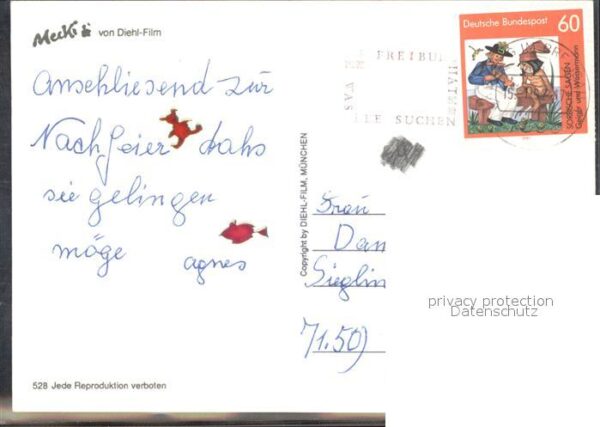 Mecki von Diehl-Film
Anschliesend zur
Nachfeier dahs
sie gelingen
möge agnes
528 Jede Reproduktion verboten
Copyright by DIEHL-FILM, MÜNCHEN
Deutsche Bundespost 60
SORBISCHE SAGEN
Geiger und Wassermann
FREIBU
SUCHEN
Frau
Dan
Sieglin
71.50)
privacy protection
Datenschutz